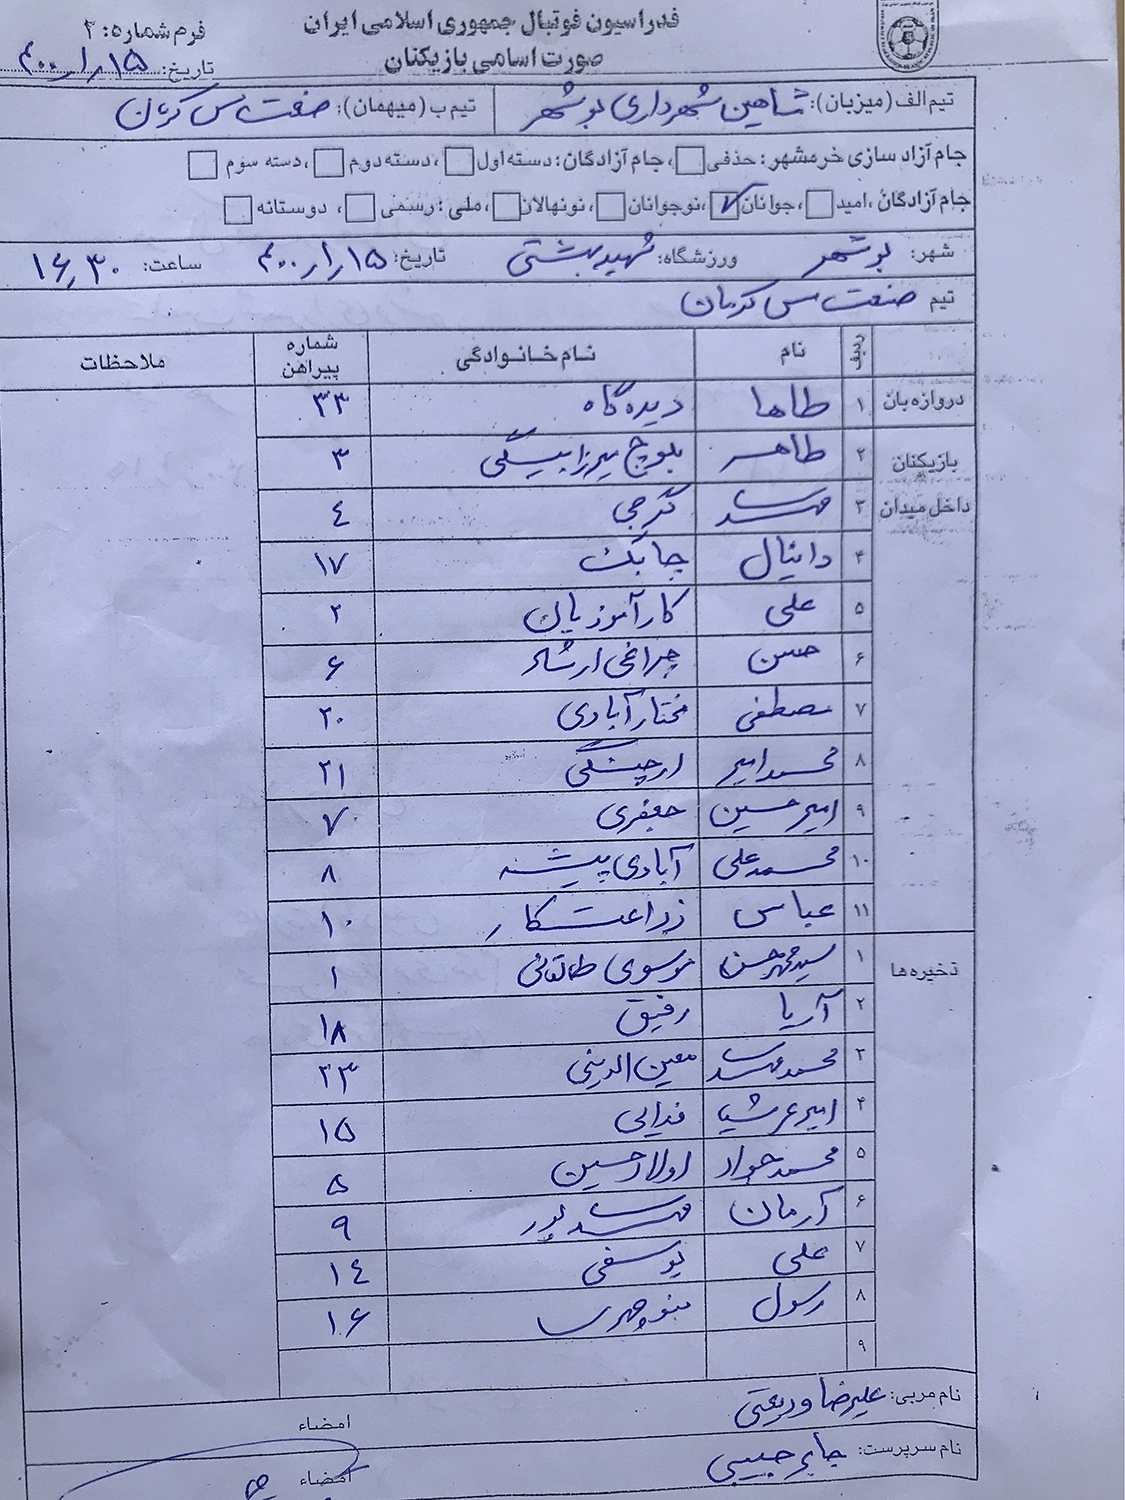 فدراسیون فوتبال جمهوری اسلامی ایران
صورت اسامی بازیکنان
فرم شماره: ۲
تاریخ: ۱۵ ر۱ر ۴۰۰
تیم الف (میزبان): شاهین شهرداری بوشهر تیم ب (میهمان): صنعت مس کرمان
جام آزاد سازی خرمشهر: حذفی ، جام آزادگان: دسته اول ، دسته دوم ، دسته سوم
جام آزادگان، امید ، جوانان ✓ ، نوجوانان ، نونهالان ، ملی: رسمی ، دوستانه
شهر: بوشهر ورزشگاه: شهید بهشتی تاریخ: ۱۵ ر۱ر ۴۰۰ ساعت: ۱۶٫۳۰
تیم صنعت مس کرمان
ردیف نام نام خانوادگی شماره پیراهن ملاحظات
دروازه بان ۱ طاها دیده گاه ۳۳
بازیکنان ۲ طاهر بلوچ میرزابیگی ۳
داخل میدان ۳ مهدی گرجی ٤
۴ دانیال چابک ۱۷
۵ علی کارآموزیان ۲
۶ حسن چراغی ارشاد ۶
۷ مصطفی مختارآبادی ۲۰
۸ محمدامیر ارجنگی ۲۱
۹ امیرحسین جعفری ۷
۱۰ محمدعلی آبادی پیشه ۸
۱۱ عباس زراعتکار ۱۰
ذخیره ها ۱ سیدمحمدحسن موسوی طالقانی ۱
۲ آریا رفیق ۱۸
۳ محمدمهدی معین الدینی ۲۳
۴ امیرعرشیا فدایی ۱۵
۵ محمدجواد اولادحسین ۵
۶ آرمان مهدی پور ۹
۷ علی یوسفی ۱٤
۸ رسول منوچهری ۱۶
۹
نام مربی: علیرضا ودیعتی امضاء
نام سرپرست: جابر حبیبی امضاء